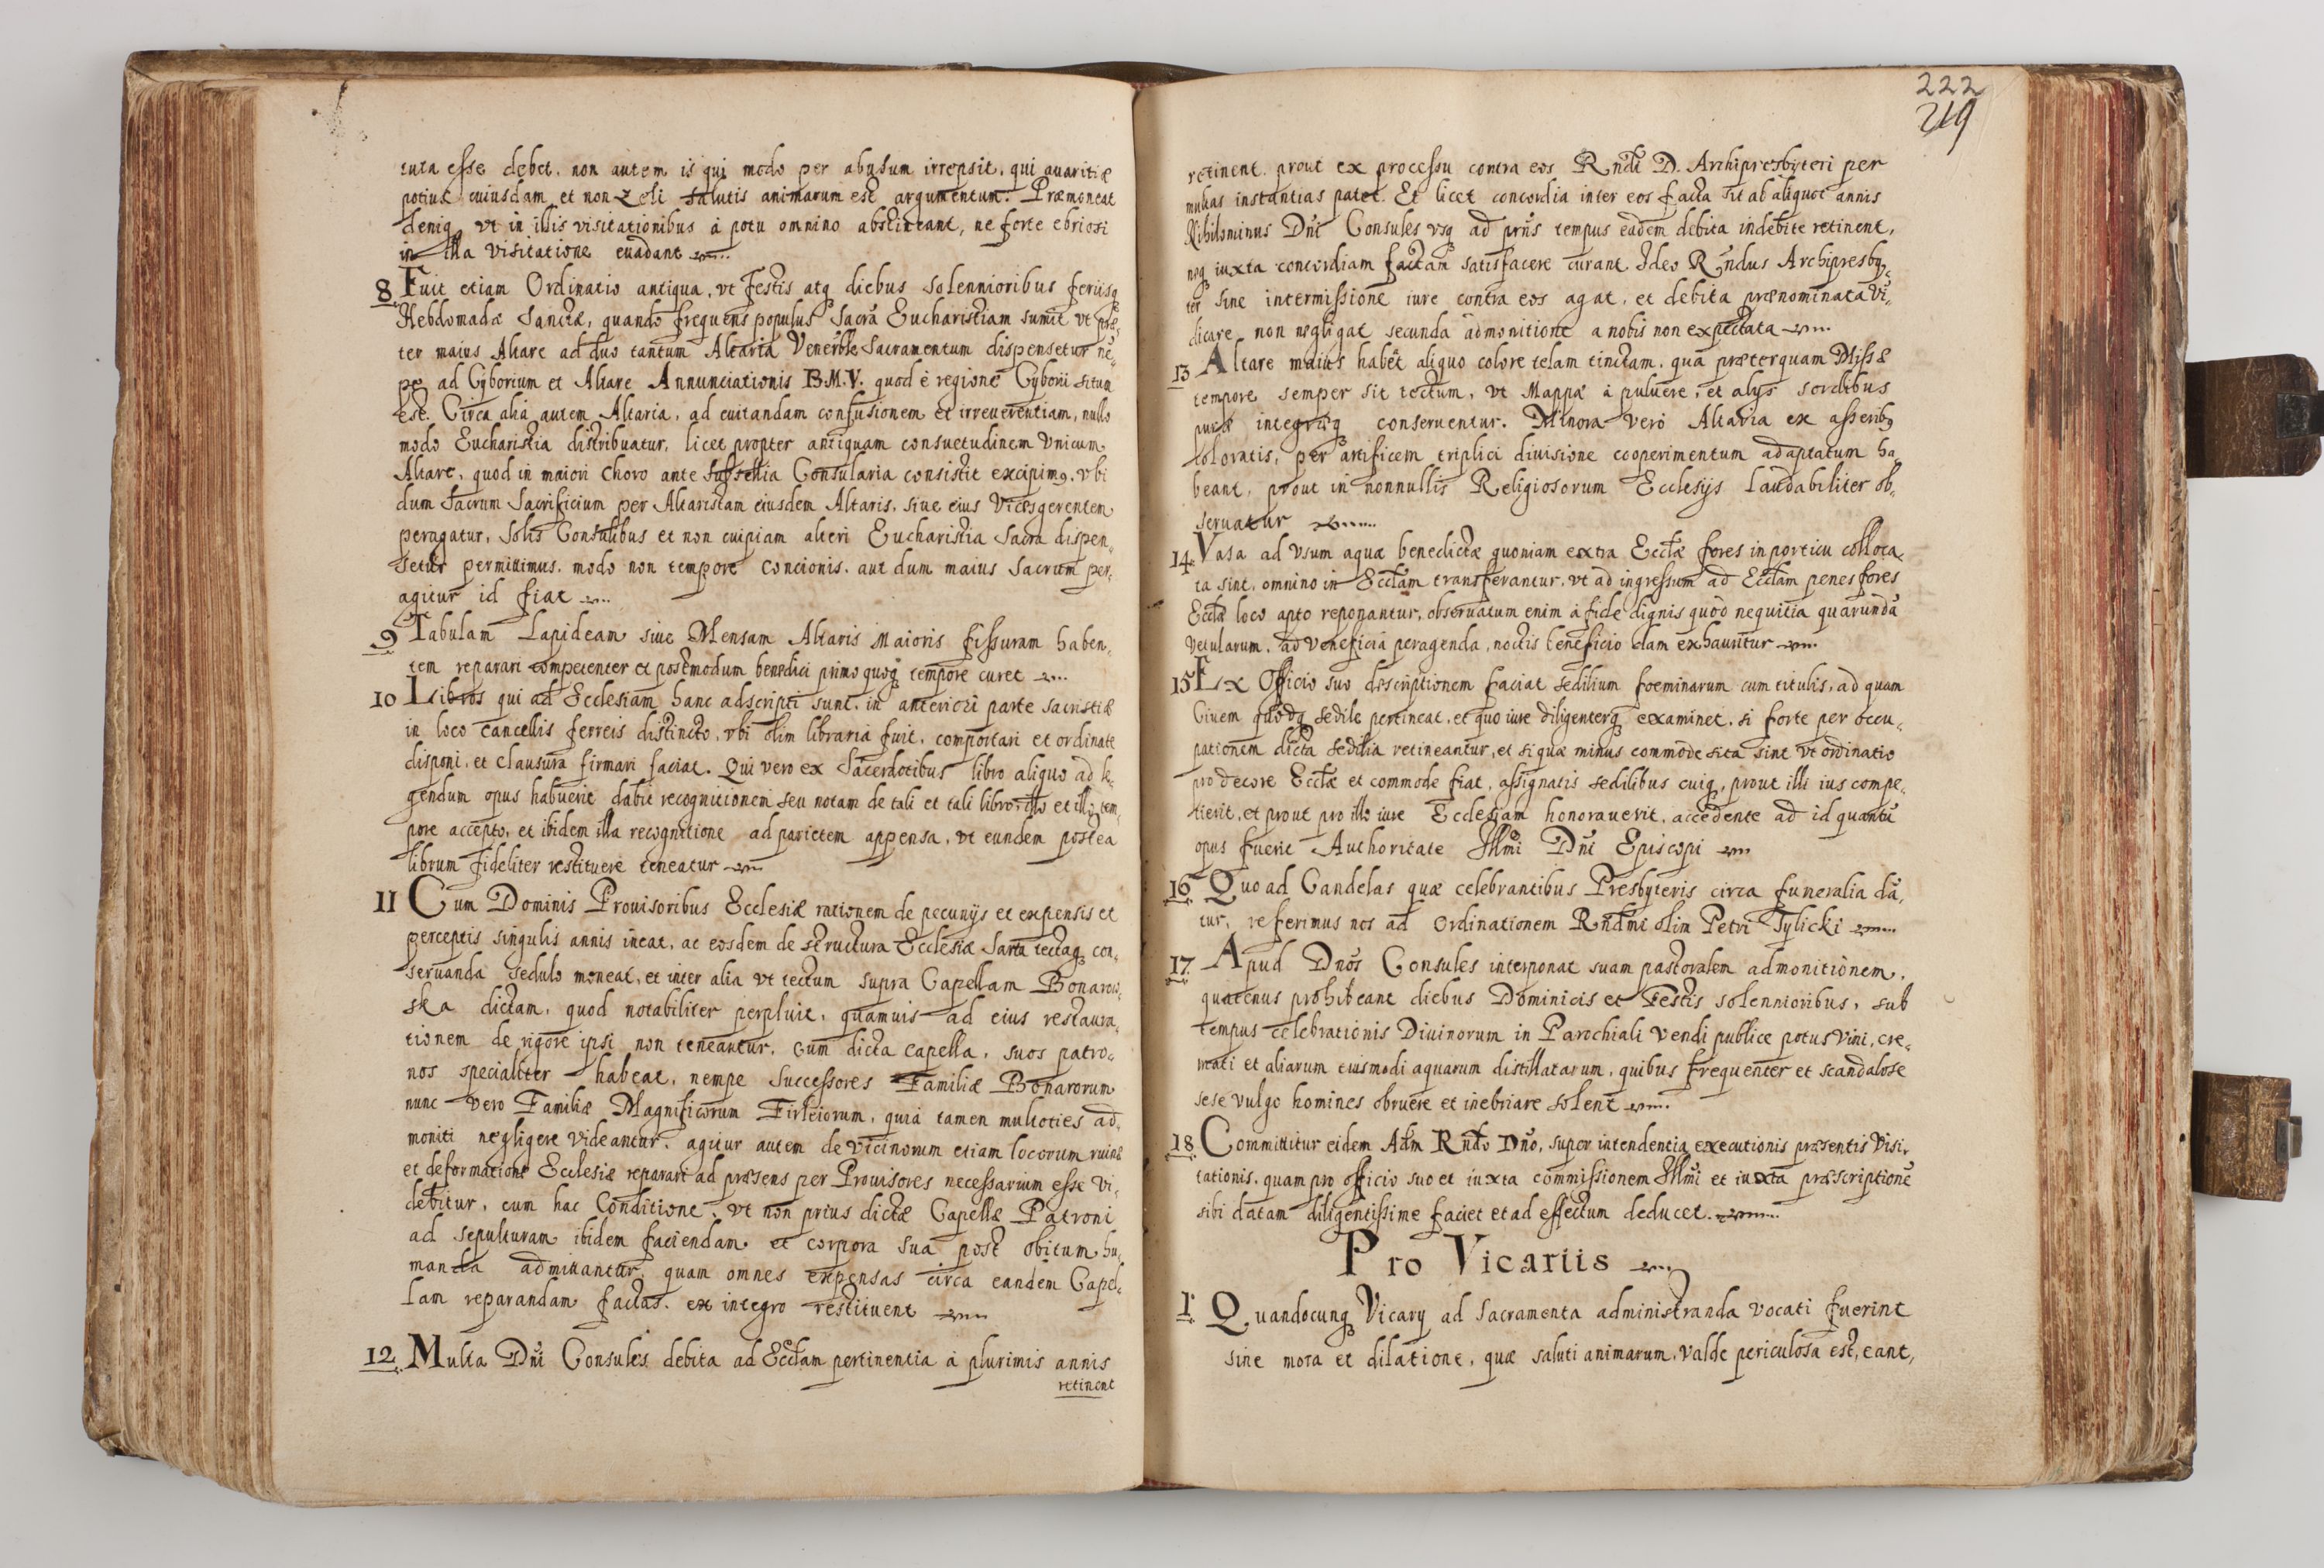 tura esse debet, non autem is qui modo per abusum irrepsit, qui auaritiæ
potius cuiusdam et non zeli salutis animarum est argumentum. Præmoneat
deniq; vt in illis visitationibus à potu omnino abstineant, ne forte ebriosi
in illa visitatione euadant
8 Fuit etiam Ordinatio antiqua, vt Festis atq; diebus solennioribus ferijsq;
Hebdomadæ Sanctæ, quando frequens populus Sacrã Eucharistiam sumit vt præ,
ter maius Altare ad duo tantum Altaria Venerble Sacramentum dispensetur ne,
pe ad Cyborium et Altare Annunciationis B.M.V. quod è regione Cyborii situm
est. Circa alia autem Altaria, ad euitandam confusionem et irreuerentiam, nullo
modo Eucharistia distribuatur, licet propter antiquam consuetudinem vnicum
Altare, quod in maiori choro ante subsellia Consularia consistit excipimus, vbi
dum Sacrum Sacrificium per Altaristam eiusdem Altaris, siue eius Vicesgerentem
peragatur, solis Consulibus et non cuipiam alteri Eucharistia Sacra dispen,
setur permittimus, modo non tempore Concionis, aut dum maius Sacrum per,
agitur id fiat
9 Tabulam Lapideam siue Mensam Altaris Maioris fissuram haben,
tem reparari competenter et postmodum benedici primo quoq; tempore curet
10 Libros qui ad Ecclesiam hanc adscripti sunt, in anteriori parte sacristiæ
in loco cancellis ferreis distincto, vbi olim libraria fuit, comportari et ordinate
disponi, et clausurã firmari faciat. Qui vero ex Sacerdotibus libro aliquo ad le,
gendum opus habuerit dabit recognitionem seu notam de tali et tali libro, illo et illo tem,
pore accepto, et ibidem illa recognitione ad parietem appensa, vt eundem postea
librum fideliter restituere teneatur
11 Cum Dominis Prouisoribus Ecclesiæ rationem de pecunijs et expensis et
perceptis singulis annis ineat, ac eosdem de structura Ecclesiæ Sarta tectaq; con,
seruanda sedulo moneat, et inter alia vt tectum supra Capellam Bonarow,
ska dictam, quod notabiliter perpluit, quamuis ad eius restaura,
tionem de rigore ipsi non teneantur, cum dicta capella, suos patro,
nos specialiter habeat, nempe Successores Familiæ Bonarorum
nunc vero Familiæ Magnificorum Firleiorum, quia tamen multoties ad,
moniti negligere videantur, agitur autem de vicinorum etiam locorum ruina
et deformatione Ecclesiæ reparari ad præsens per Prouisores necessarium esse vi,
debitur, cum hac Conditione, vt non prius dictæ Capellæ Patroni
ad sepulturam ibidem faciendam et corpora sua post obitum hu,
manda admittantur, quam omnes expensas circa eandem Capel,
lam reparandam factas, ex integro restituent
12 Multa Dñi Consules debita ad Eccłam pertinentia à plurimis annis
retinent
222
219
retinent, prout ex processu contra eos Rndi D. Archipresbyteri per
multas instantias patet. Et licet concordia inter eos facta sit ab aliquot annis
Nihilominus Dñi Consules vsq; ad prñs tempus eadem debita indebite retinent,
neq; iuxta concordiam factam satisfacere curant. Ideo Rndus Archipresby,
ter sine intermissione iure contra eos agat, et debita prænominata vi,
dicare non negligat secunda admonitione a nobis non expectata
13 Altare maius habet aliquo colore telam tinctam, qua præterquam Missæ
tempore semper sit tectum, vt Mappæ à puluere, et alijs sordibus
puræ integræq; conseruentur. Minora verò Altaria ex asserib9
coloratis, per artificem triplici diuisione cooperimentum adaptatum ha,
beant, prout in nonnullis Religiosorum Ecclesijs laudabiliter ob,
seruatur
14 Vasa ad vsum aquæ benedictæ quoniam extra Ecctæ fores in porticu colloca,
ta sint, omnino in Eccłam transferantur, vt ad ingressum ad Eccłam penes fores
Eccłæ loco apto reponantur, obseruatum enim à fide dignis quod nequitia quarundã
vetularum, ad veneficia peragenda, noctis beneficio clam exhauritur
15 Ex Officio suo descriptionem faciat sedilium foeminarum cum titulis, ad quam
Ciuem quodq; sedile pertineat, et quo iure diligenterq; examinet, si forte per occu,
pationem dicta sedilia retineantur, et si quæ minus commode sita sint vt ordinatio
pro decore Eccłæ et commode fiat, assignatis sedilibus cuiq; prout illi ius compe,
tierit, et prout pro illo iure Ecclesiam honorauerit, accedente ad id quantũ
opus fuerit Authoritate Illmi Dñi Episcopi
16 Quo ad Candelas quæ celebrantibus Presbyteris circa funeralia dã,
tur, referimus nos ad Ordinationem Rndmi olim Petri Tylicki
17 Apud Dnos Consules interponat suam pastoralem admonitionem,
quatenus prohibeant diebus Dominicis et Festis solennioribus, sub
tempus celebrationis Diuinorum in Parochiali vendi publice potus vini, cre,
mati et aliarum eiusmodi aquarum distillatarum, quibus frequenter et scandalose
sese vulgo homines obruere et inebriare solent
18 Committitur eidem Adm Rndo Dño, superintendentia executionis præsentis Visi,
tationis, quam pro officio suo et iuxta commissionem Illmi et iuxta præscriptionẽ
sibi datam diligentissime faciet et ad effectum deducet.
Pro Vicariis
1 Quandocunq; Vicarij ad Sacramenta administranda vocati fuerint
sine mora et dilatione, quæ saluti animarum valde periculosa est, eant,